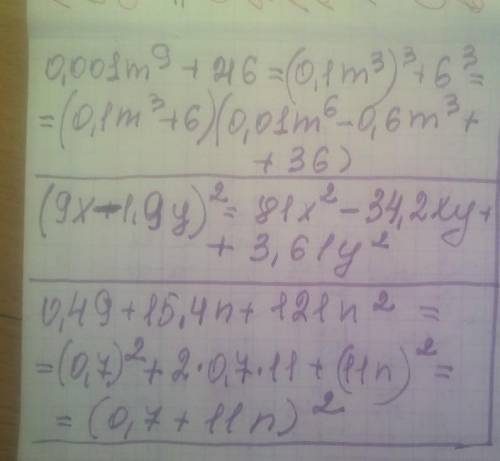 0,001m⁹ + 216 = (0,1m³)³ + 6³ =
= (0,1m³ + 6)(0,01m⁶ - 0,6m³ +
+ 36)
(9x - 1,9y)² = 81x² - 34,2xy +
+ 3,61y²
0,49 + 15,4n + 121n² =
= (0,7)² + 2·0,7·11 + (11n)² =
= (0,7 + 11n)²